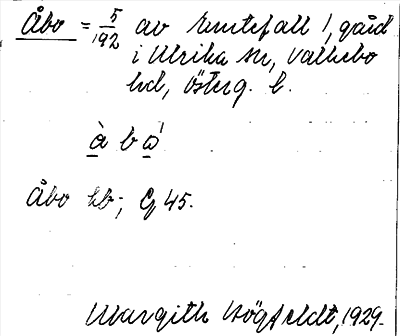 Åbo = 5/192 av Rentefall 1, gård
i Ulrika sn, Valkebo
hd, Österg. l.
à b ὼ
Åbo hb; Cg 45.
Margith Högfeldt, 1929.